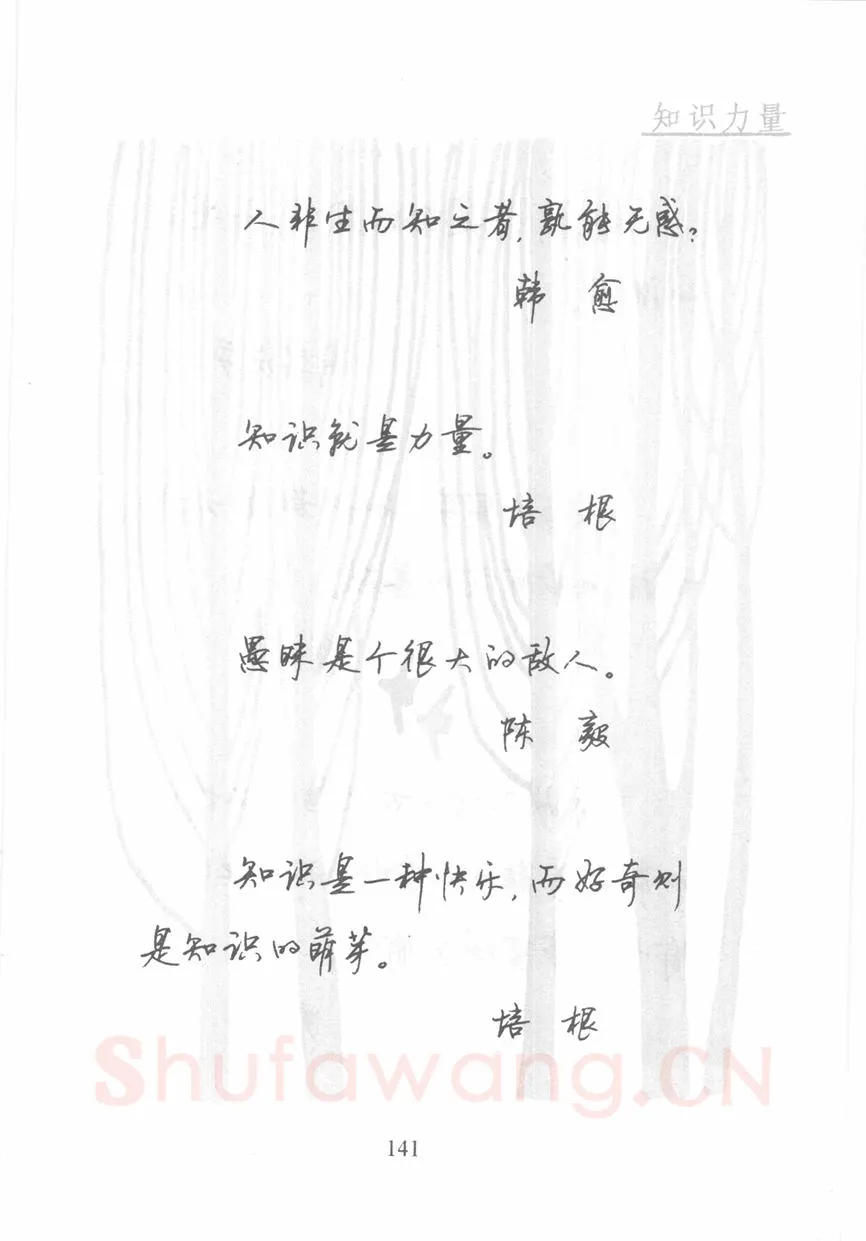 知识力量
人非生而知之者,孰能无惑?
韩 愈
知识就是力量。
培 根
愚昧是个很大的敌人。
陈 毅
知识是一种快乐,而好奇则
是知识的萌芽。
培 根
Shufawang.CN
141